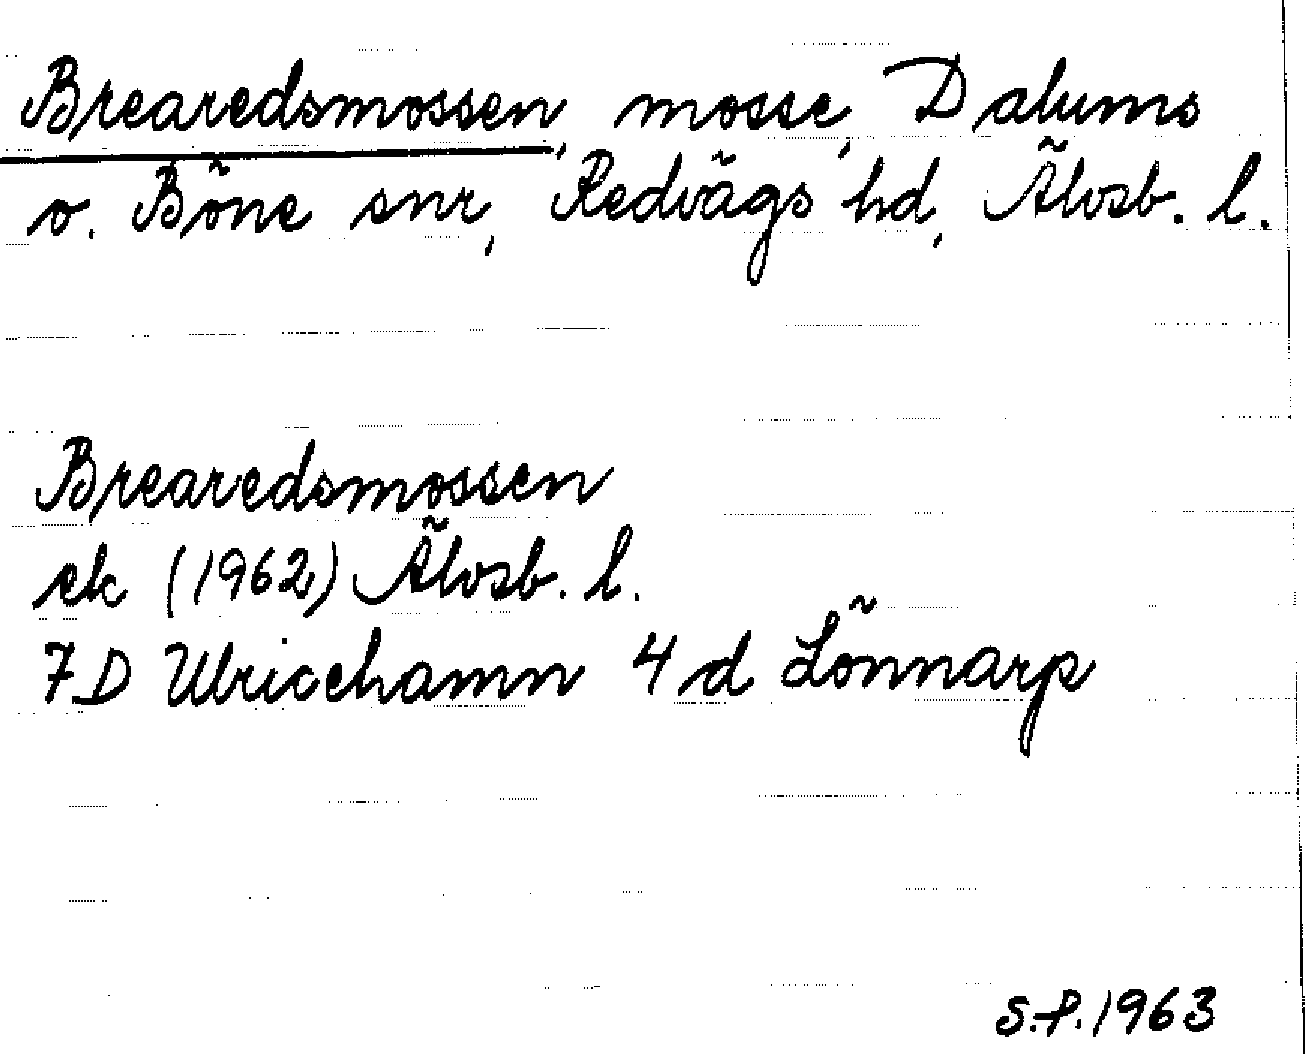 Brearedsmossen, mosse, Dalums
o. Böne snr, Redvägs hd, Älvsb. l.
Brearedsmossen
ek (1962) Älvsb. l.
7D Ulricehamn 4 d Lönnarp
S.P. 1963